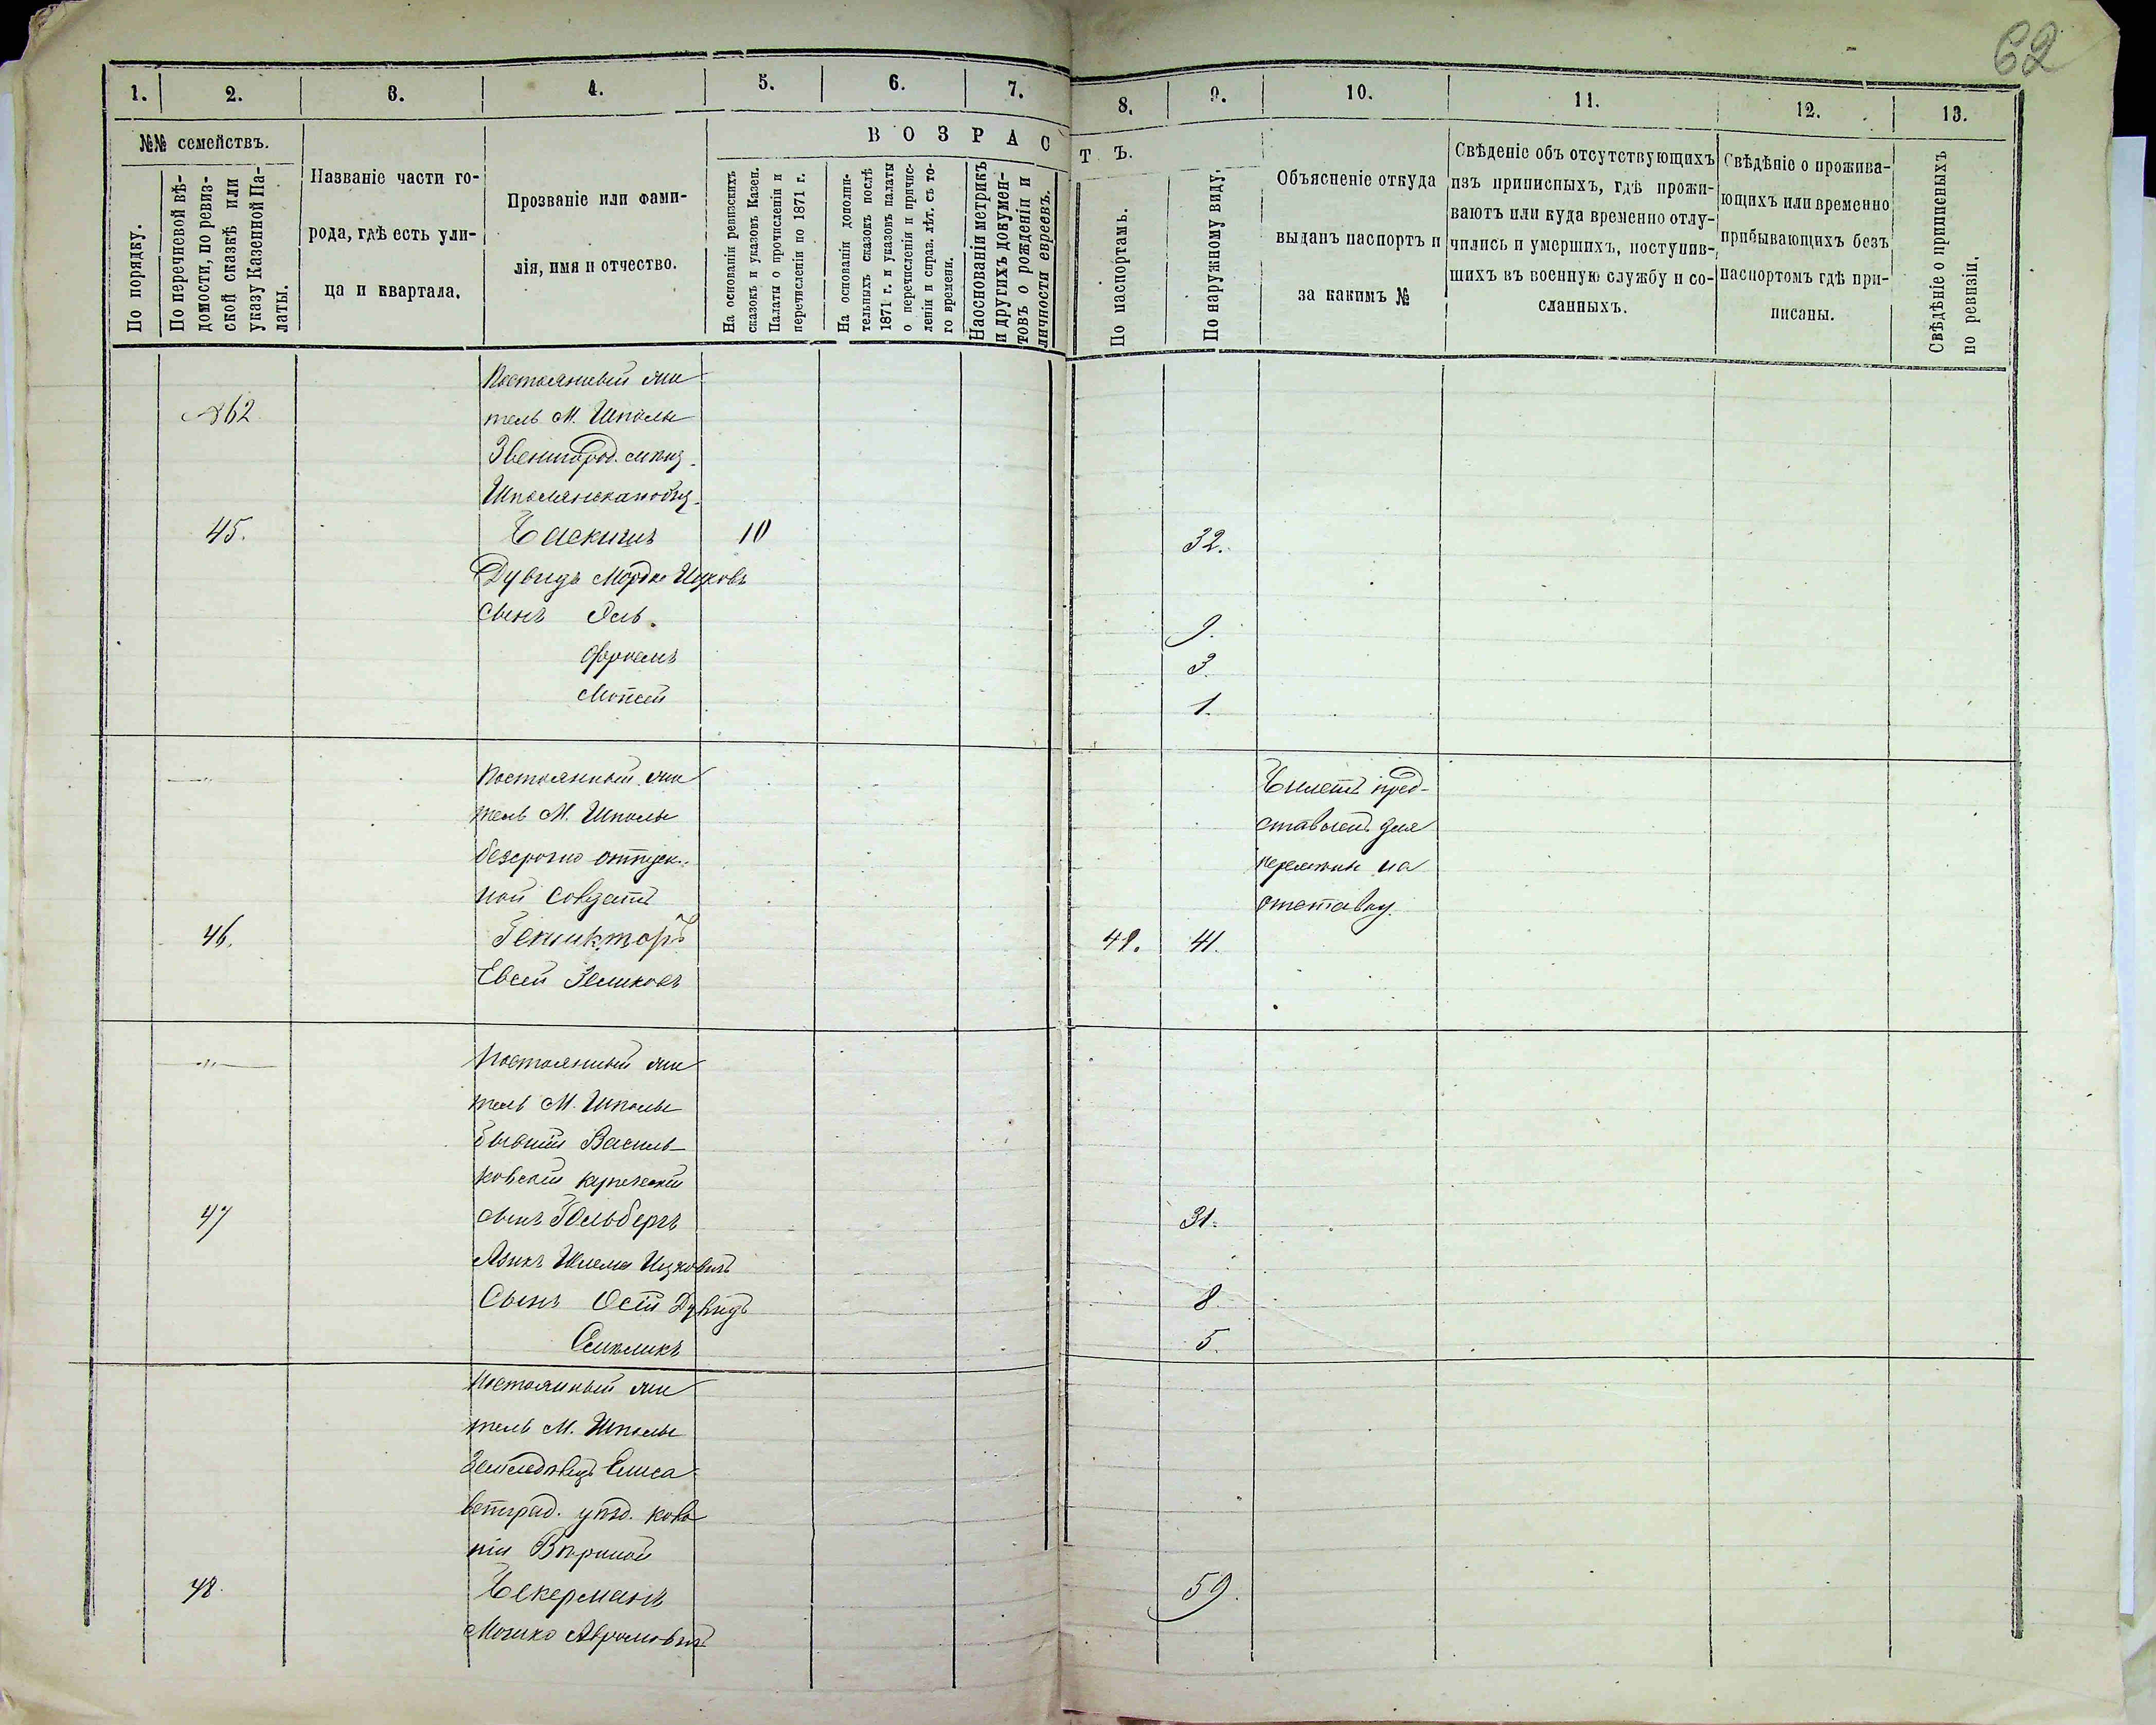 62
1. 2. 3. 4. 5. 6. 7. 8. 9. 10. 11. 12. 13.
№№ семействъ.
По порядку.
По перечневой вѣ-
домости, по ревиз-
ской сказкѣ или
указу Казенной Па-
латы.
Названіе части го-
рода, гдѣ есть ули-
ца и квартала.
Прозваніе или фами-
лія, имя и отчество.
ВОЗРАСТЪ.
На основаніи ревизскихъ
сказокъ и указовъ Казен.
Палаты о прочисленіи и
перечисленіи по 1871 г.
На основаніи дополни-
тельныхъ сказокъ послѣ
1871 г. и указовъ палаты
о перечисленіи и причис-
леніи и справ. лѣт. съ то-
го времени.
На основаніи метрикъ
и другихъ докумен-
товъ о рожденіи и
личности евреевъ.
По паспортамъ.
По наружному виду.
Объясненіе откуда
выданъ паспортъ и
за какимъ №
Свѣденіе объ отсутствующихъ
изъ приписныхъ, гдѣ прожи-
ваютъ или куда временно отлу-
чились и умершихъ, поступив-
шихъ въ военную службу и со-
сланныхъ.
Свѣдѣніе о прожива-
ющихъ или временно
прибывающихъ безъ
паспортомъ гдѣ при-
писаны.
Свѣдѣніе о приписныхъ
по ревизіи.
Постоянный жи
№62 тель М. Шполы
Звенигород.
45. 10 32.
Дувидъ Мордко Ицковъ
сынъ 9.
3.
Мойсей 1.
Постоянный жи Билетъ пред-
тель М. Шполы ставленъ для
безсрочно отпуск- на
ной солдатъ отставку.
46. 41. 41.
Евсей Зеликовъ
Постоянный жи
тель М. Шполы
бывшій Василь-
ковскій купеческій
47 сынъ Гольбергъ 31.
Шлема Ицковичъ
Сынъ Дувидъ 8.
5.
Постоянный жи
тель М. Шполы
Земледѣлецъ Елиса
ветград. уѣзд. коло
ніи
48. 59.
Мошко Аврумовичъ